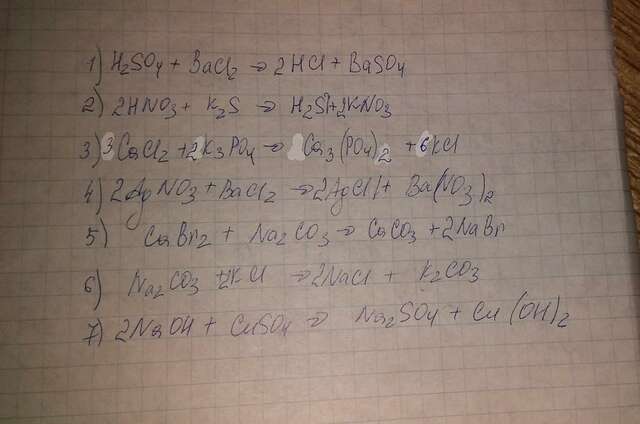 1) H₂SO₄ + BaCl₂ → 2HCl + BaSO₄
2) 2HNO₃ + K₂S → H₂S↑ + 2KNO₃
3) 3CaCl₂ + 2K₃PO₄ → Ca₃(PO₄)₂ + 6KCl
4) 2AgNO₃ + BaCl₂ → 2AgCl↓ + Ba(NO₃)₂
5) CaBr₂ + Na₂CO₃ → CaCO₃ + 2NaBr
6) Na₂CO₃ + 2KCl → 2NaCl + K₂CO₃
7) 2NaOH + CuSO₄ → Na₂SO₄ + Cu(OH)₂